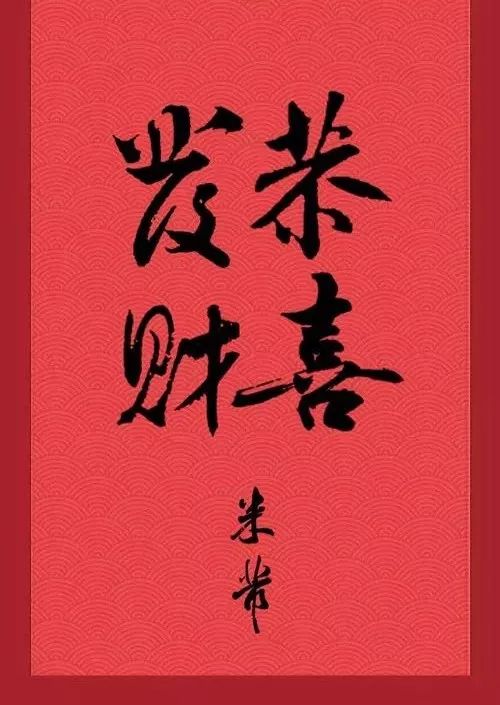 恭喜
發财
米芾